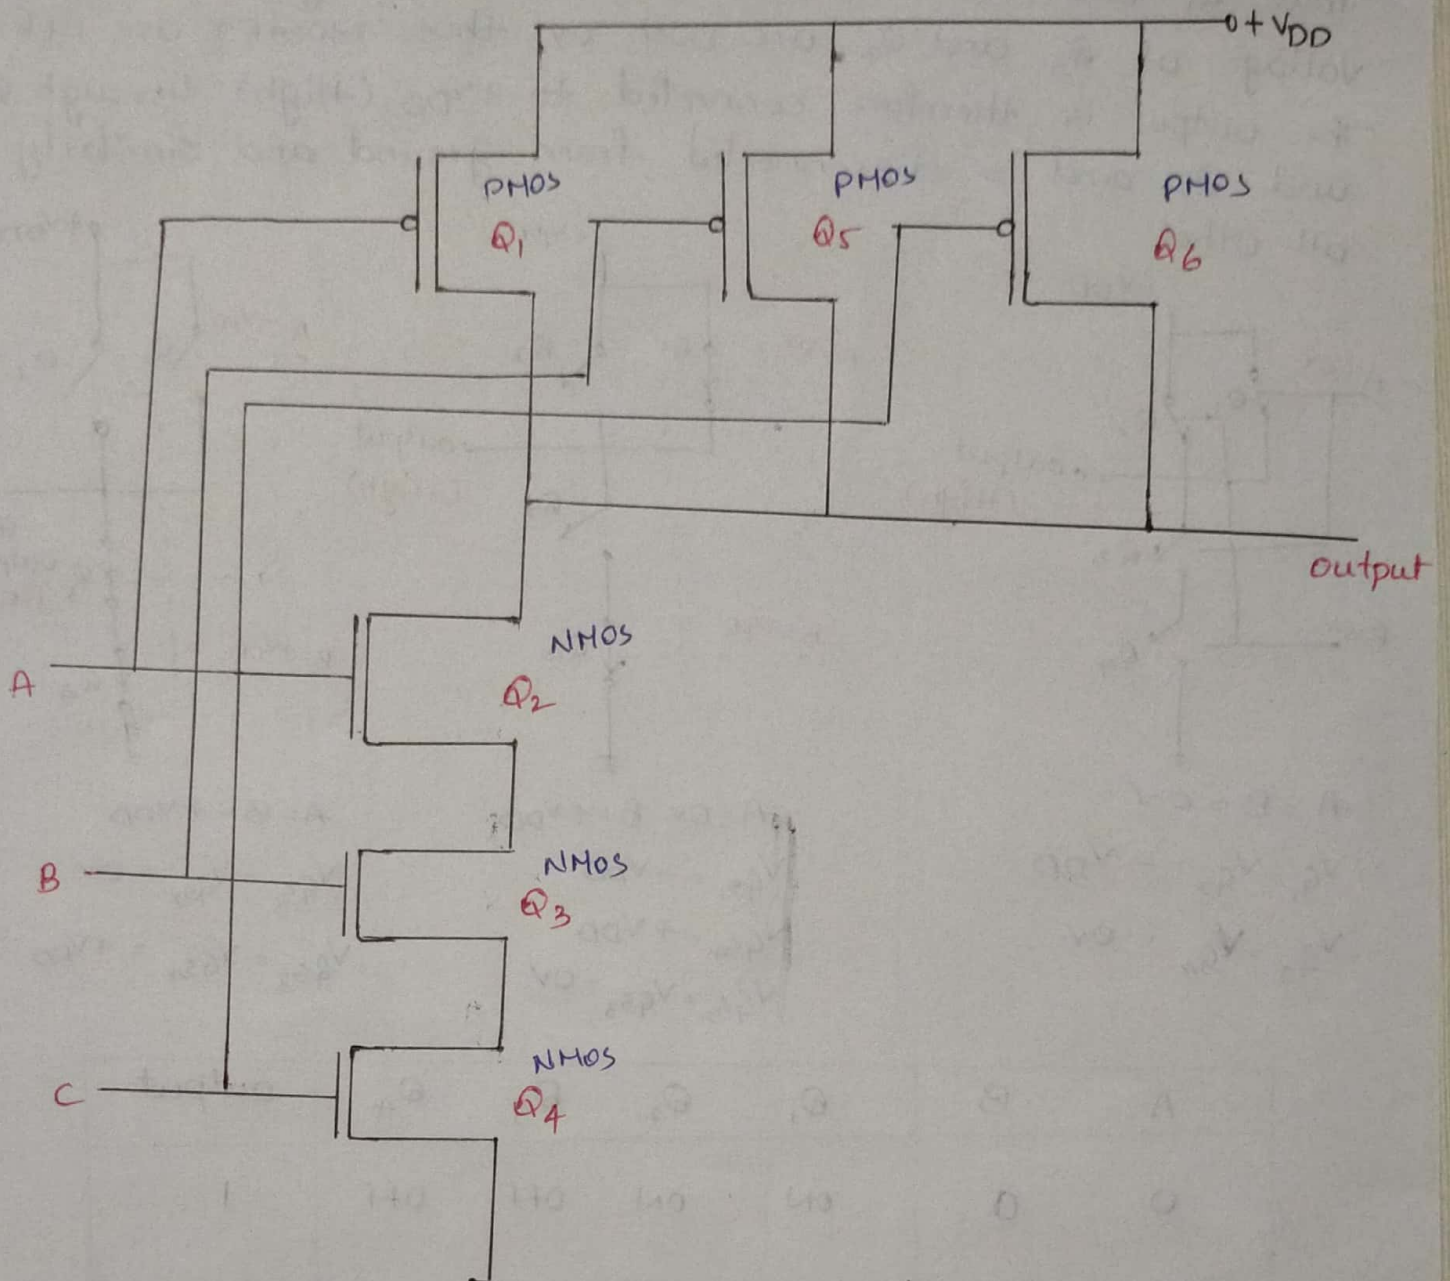 +VDD
PMOS
Q1
PMOS
Q5
PMOS
Q6
output
NMOS
Q2
A
NMOS
Q3
B
NMOS
Q4
C